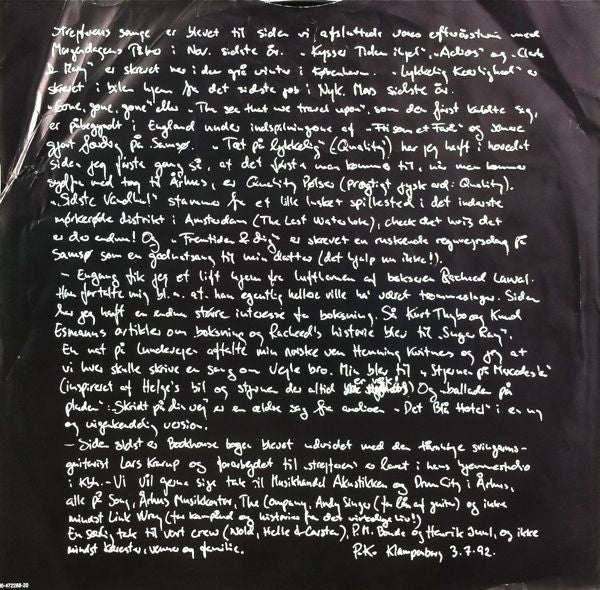 Streiferens sange er blevet til siden vi afsluttede vores efterårsturné med
Morgendagens Tåber i Nov. sidste år. "Kysser Tiden ihjel", "Adios" og "Clark
& Mary" er skrevet her i den grå vinter i København. "Lykkelig Kærlighed" er
skrevet i bilen hjem fra det sidste job i Nyk. Mors sidste år.
"Gone, gone, gone" eller "The sea that we travel upon", som den først kaldte sig,
er påbegyndt i England under indspilningerne af "Fri som et Får" og senere
gjort færdig på Samsø. "Tæt på lykkelig" (Quality) har jeg haft i hovedet
siden jeg første gang så, at det første man kommer til, når man kommer
sydfra med tog til Århus, er Quality Pølser (prægtigt jysk ord: Quality).
"Sidste Vandhul" stammer fra et lille lusket spillested i det inderste
mørkerøde distrikt i Amsterdam (The Last Waterhole), check det hvis det
er der endnu! Og "Fremtiden & dig" er skrevet en ruskende regnvejrsdag på
Samsø som en godnatsang til min datter (det hjalp nu ikke!).
- Engang fik jeg et lift hjem fra lufthavnen af bokseren Racheed Lawal.
Han fortalte mig bl.a. at han egentlig hellere ville ha' været trommeslager. Siden
har jeg haft en endnu større interesse for boksning. Så Kurt Thyboe og Knud
Esmanns artikler om boksning og Racheed's historie blev til "Sugar Ray".
En nat på landevejen aftalte min norske ven Henning Kvitnes og jeg at
vi hver skulle skrive en sang om Vejle bro. Min blev til "Stjernen på Mercedes'le"
(inspireret af Helge's bil og stjernen der altid er væk) Og balladen på
pladen: "Skridt på din vej" er en ældre sag fra andioen "Det Blå Hotel" i en ny
og uigenkendelig version.
- Siden sidst er Backhouse bogen blevet udvidet med den tårnhøje svingarms-
guitarist Lars Krarup og forarbejdet til "streiferen" er lavet i hans hjemmestudio
i Kbh. - Vi vil gerne sige tak til Musikhandel Akustikken og Drum City i Århus,
alle på Sony, Århus Musikkontor, The Company, Andy Singer (for lån af guitar) og ikke
mindst Link Wray (for kampånd og histories fra det virkelige liv!)
En særlig tak til vort crew (Nold, Helle & Carsten), P.M. Bonde og Henrik Juul, og ikke
mindst kærester, venner og familie. P.Ko Klampenborg 3.7.92.
10-472288-20